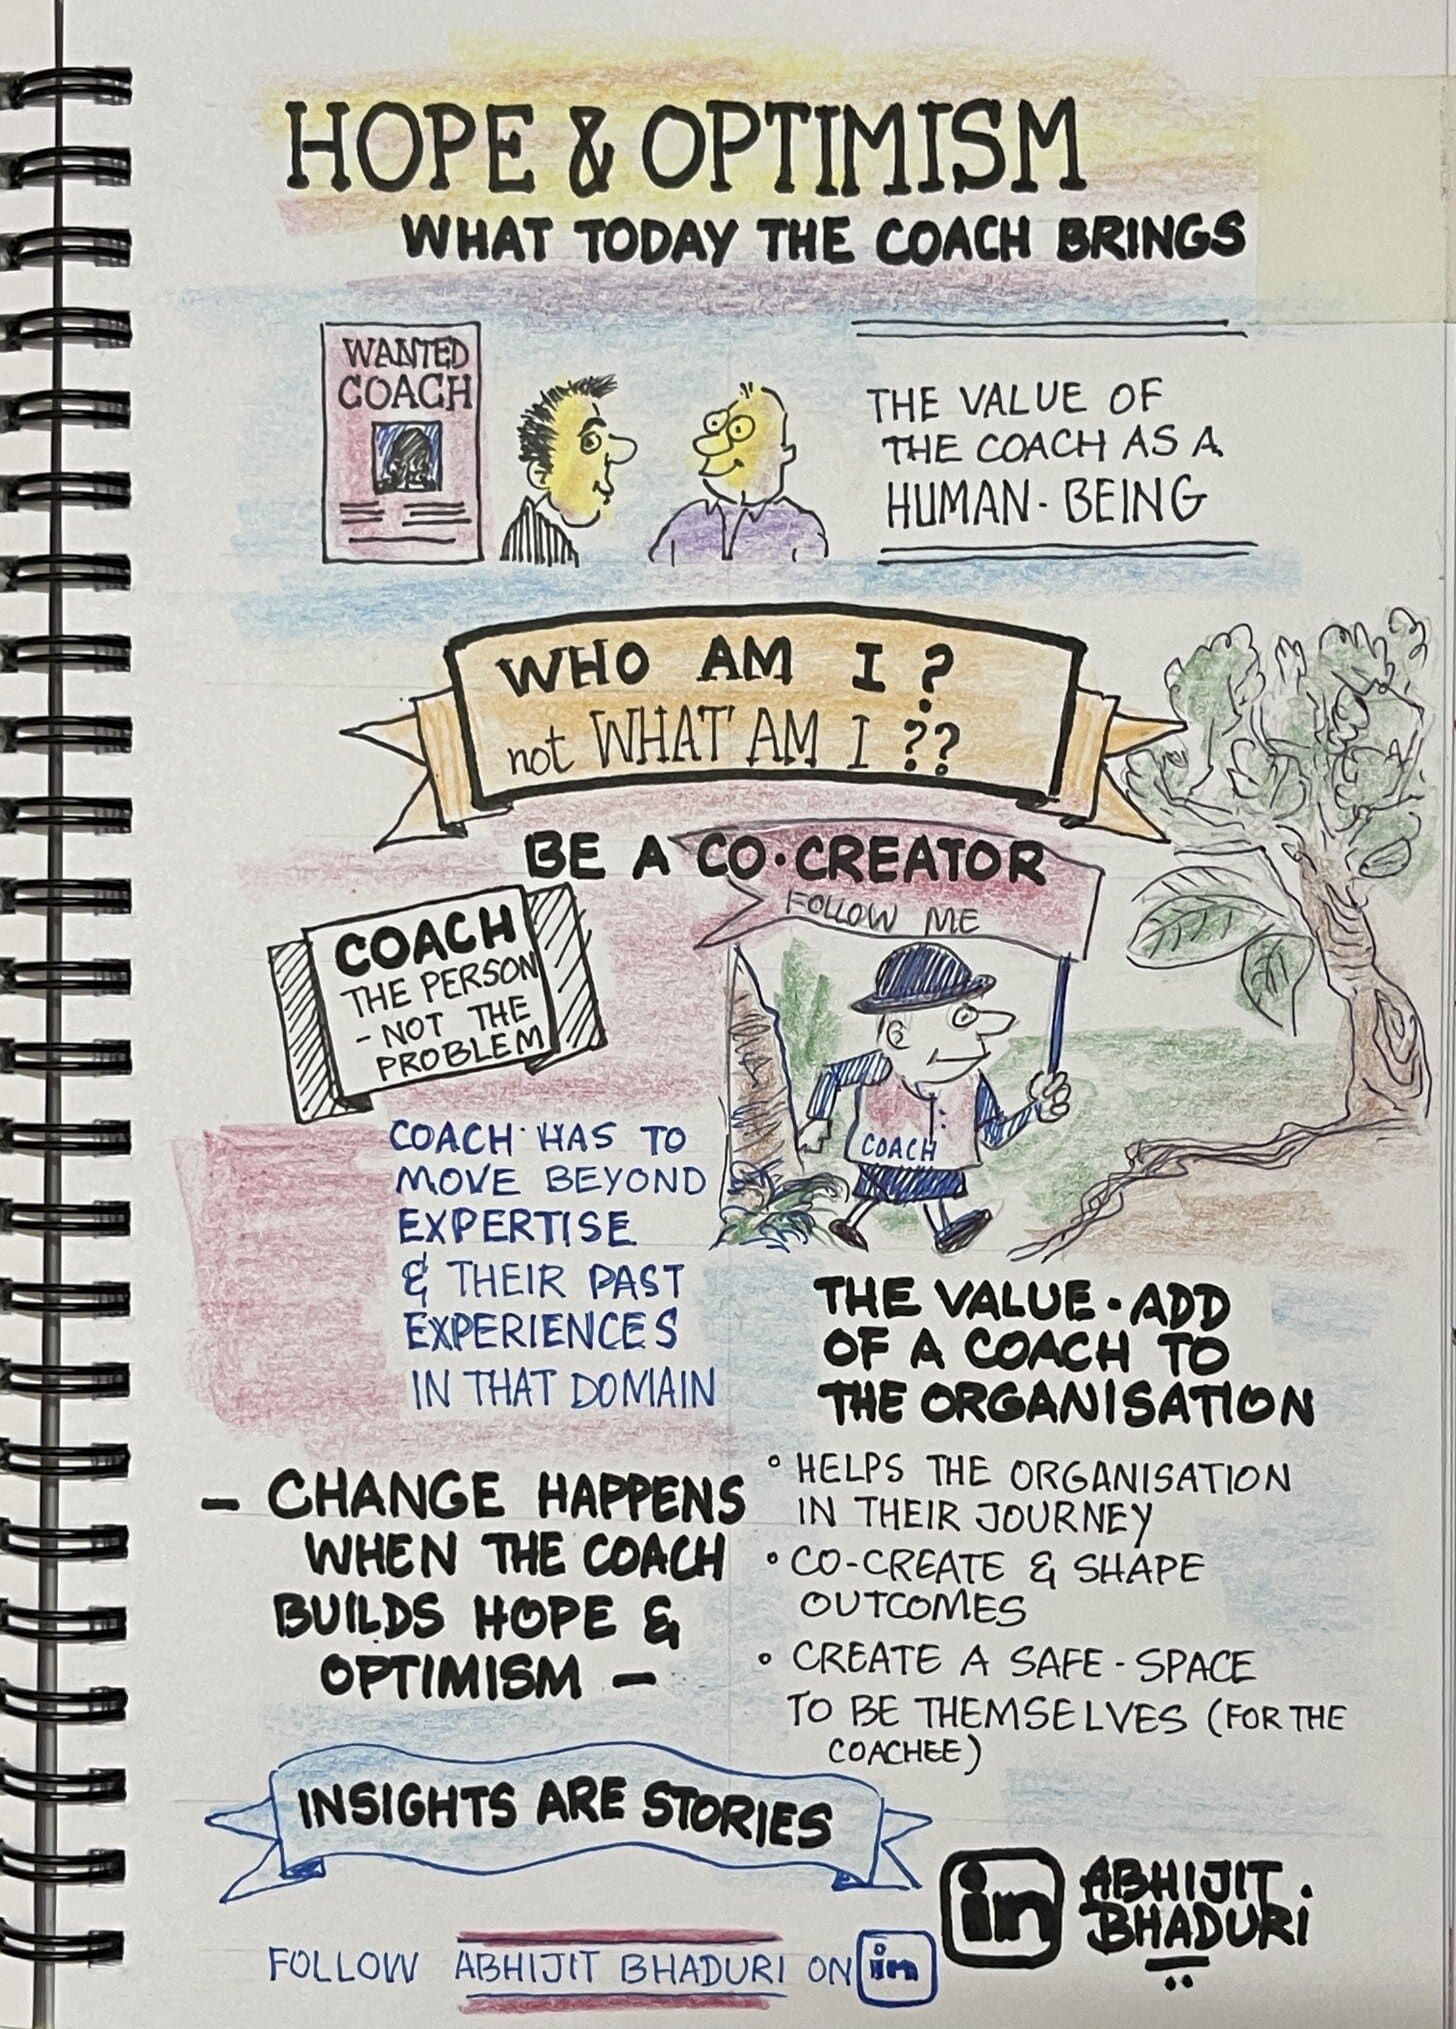 HOPE & OPTIMISM
WHAT TODAY THE COACH BRINGS
WANTED
COACH
THE VALUE OF
THE COACH AS A
HUMAN-BEING
WHO AM I?
not WHAT AM I??
BE A CO-CREATOR
FOLLOW ME
COACH
THE PERSON
- NOT THE
PROBLEM
COACH
COACH HAS TO
MOVE BEYOND
EXPERTISE
& THEIR PAST
EXPERIENCES
IN THAT DOMAIN
THE VALUE-ADD
OF A COACH TO
THE ORGANISATION
• HELPS THE ORGANISATION
IN THEIR JOURNEY
• CO-CREATE & SHAPE
OUTCOMES
• CREATE A SAFE-SPACE
TO BE THEMSELVES (FOR THE
COACHEE)
- CHANGE HAPPENS
WHEN THE COACH
BUILDS HOPE &
OPTIMISM -
INSIGHTS ARE STORIES
in ABHIJIT
BHADURI
FOLLOW ABHIJIT BHADURI ON in